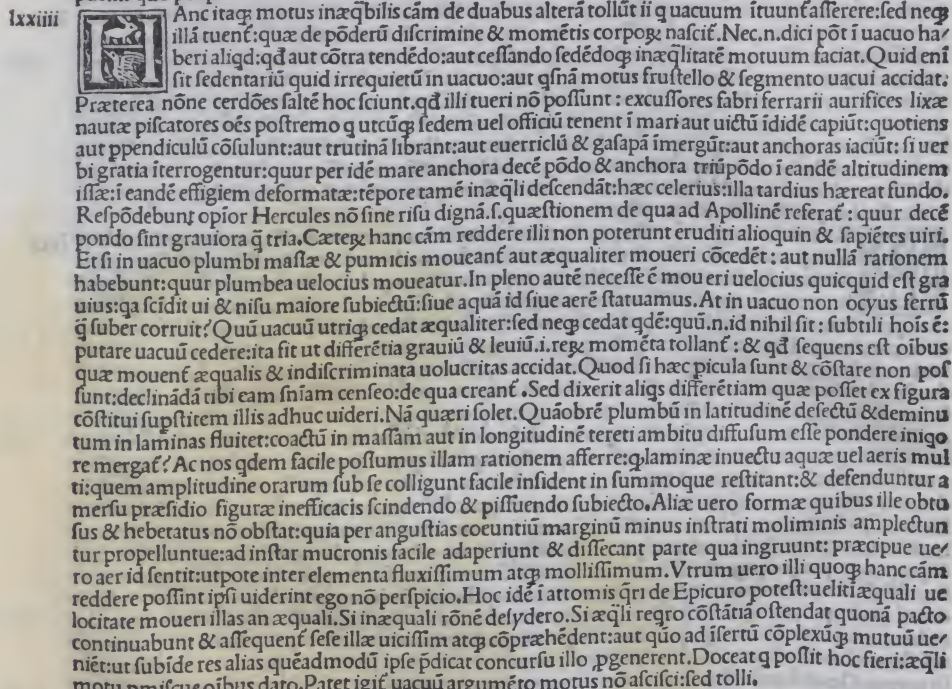 lxxiiii
HAnc itaqȝ motus inæq̃bilis cãm de duabus alterã tollũt ii q uacuum ĩtuunt̃ aſſerere:ſed neqȝ
illã tuent̃:quæ de põderũ diſcrimine & momẽtis corpoꝝ naſcit̃. Nec.n.dici põt ĩ uacuo ha
beri aliqd:qd̃ aut cõtra tendẽdo:aut ceſſando ſedẽdoqȝ inæq̃litatẽ motuum faciat. Quid eni
ſit ſedentariũ quid irrequietũ in uacuo:aut qſnã motus fruſtello & ſegmento uacui accidat.
Præterea nõne cerdões ſaltẽ hoc ſciunt.qd̃ illi tueri nõ poſſunt : excuſſores fabri ferrarii aurifices lixæ
nautæ piſcatores oẽs poſtremo q utcũqȝ ſedem uel officiũ tenent ĩ mari aut uictũ ĩdidẽ capiũt:quotiens
aut ꝑpendiculũ cõſulunt:aut trutinã librant:aut euerriclũ & gaſapã ĩmergũt:aut anchoras iaciũt: ſi uer
bi gratia ĩterrogentur:quur per idẽ mare anchora decẽ põdo & anchora triũpõdo ĩ eandẽ altitudinem
iſſæ:ĩ eandẽ effigiem deformatæ:tẽpore tamẽ inæq̃li deſcendãt:hæc celerius:illa tardius hæreat fundo.
Reſpõdebunt opĩor Hercules nõ ſine riſu dignã.ſ.quæſtionem de qua ad Apollinẽ referat̃ : quur decẽ
pondo ſint grauiora q̃ tria.Cæteꝝ hanc cãm reddere illi non poterunt eruditi alioquin & ſapiẽtes uiri.
Et ſi in uacuo plumbi maſſæ & pumicis moueant̃ aut æqualiter moueri cõcedẽt : aut nullã rationem
habebunt:quur plumbea uelocius moueatur.In pleno autẽ neceſſe ẽ moueri uelocius quicquid eſt gra
uius:qa ſcĩdit ui & niſu maiore ſubiectũ:ſiue aquã id ſiue aerẽ ſtatuamus.At in uacuo non ocyus ferrũ
q̃ ſuber corruit? Quũ uacuũ utriqȝ cedat æqualiter:ſed neqȝ cedat qdẽ:quũ.n.id nihil ſit : ſubtili hoĩs ẽ:
putare uacuũ cedere:ita fit ut differẽtia grauiũ & leuiũ.i.reꝝ momẽta tollant̃ : & qd̃ ſequens eſt oĩbus
quæ mouent̃ æqualis & indiſcriminata uolucritas accidat. Quod ſi hæc picula ſunt & cõſtare non poſ
ſunt:declinãdã tibi eam ſñiam cenſeo:de qua creant̃. Sed dixerit aliqs differẽtiam quæ poſſet ex figura
cõſtitui ſupſtitem illis adhuc uideri. Nã quæri ſolet. Quãobrẽ plumbũ in latitudinẽ deſectũ & deminu
tum in laminas fluitet:coactũ in maſſam aut in longitudinẽ tereti ambitu diffuſum eſſe pondere iniqo
re mergat̃? Ac nos qdem facile poſſumus illam rationem afferre:ꝙ laminæ inuectu aquæ uel aeris mul
ti:quem amplitudine orarum ſub ſe colligunt facile inſident in ſummoque reſtitant:& defenduntur a
merſu præſidio figuræ inefficacis ſcindendo & piſſuendo ſubiecto.Aliæ uero formæ quibus ille obtu
ſus & hebetatus nõ obſtat:quia per anguſtias coeuntiũ marginũ minus inſtrati moliminis amplectun
tur propelluntue:ad inſtar mucronis facile adaperiunt & diſſecant parte qua ingruunt: præcipue ue⸗
ro aer id ſentit:utpote inter elementa fluxiſſimum atqȝ molliſſimum. Vtrum uero illi quoqȝ hanc cãm
reddere poſſint ipſi uiderint ego nõ perſpicio.Hoc idẽ ĩ attomis q̃ri de Epicuro poteſt:uelĩti æquali ue
locitate moueri illas an æquali. Si inæquali rõnẽ deſydero. Si æq̃li regro cõſtãtiã oſtendat quonã pacto
continuabunt & aſſequent̃ ſeſe illæ uiciſſim atqȝ cõpræhẽdent:aut quõ ad ĩſertũ cõplexũqȝ mutuũ ue⸗
niẽt:ut ſubĩde res alias quẽadmodũ ipſe p̃dicat concurſu illo ꝓgenerent.Doceat q poſſit hoc fieri:æq̃li
motu ꝓmiſcue oĩbus dato.Patet igit̃ uacuũ argumẽto motus nõ aſciſci:ſed tolli.